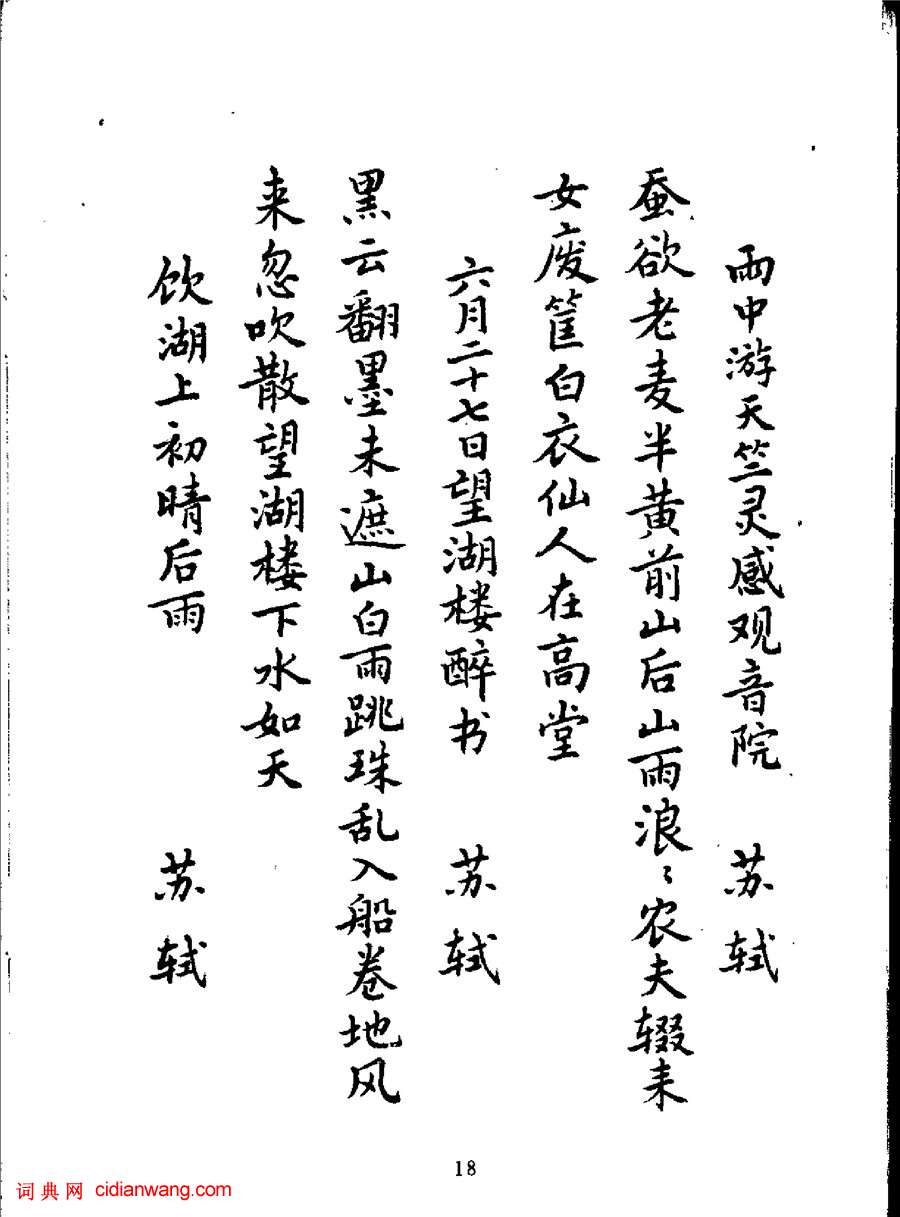 雨中游天竺灵感观音院 苏轼
蚕欲老麦半黄前山后山雨浪〻农夫辍耒
女废筐白衣仙人在高堂
六月二十七日望湖楼醉书 苏轼
黑云翻墨未遮山白雨跳珠乱入船卷地风
来忽吹散望湖楼下水如天
饮湖上初晴后雨 苏轼
18
词典网 cidianwang.com